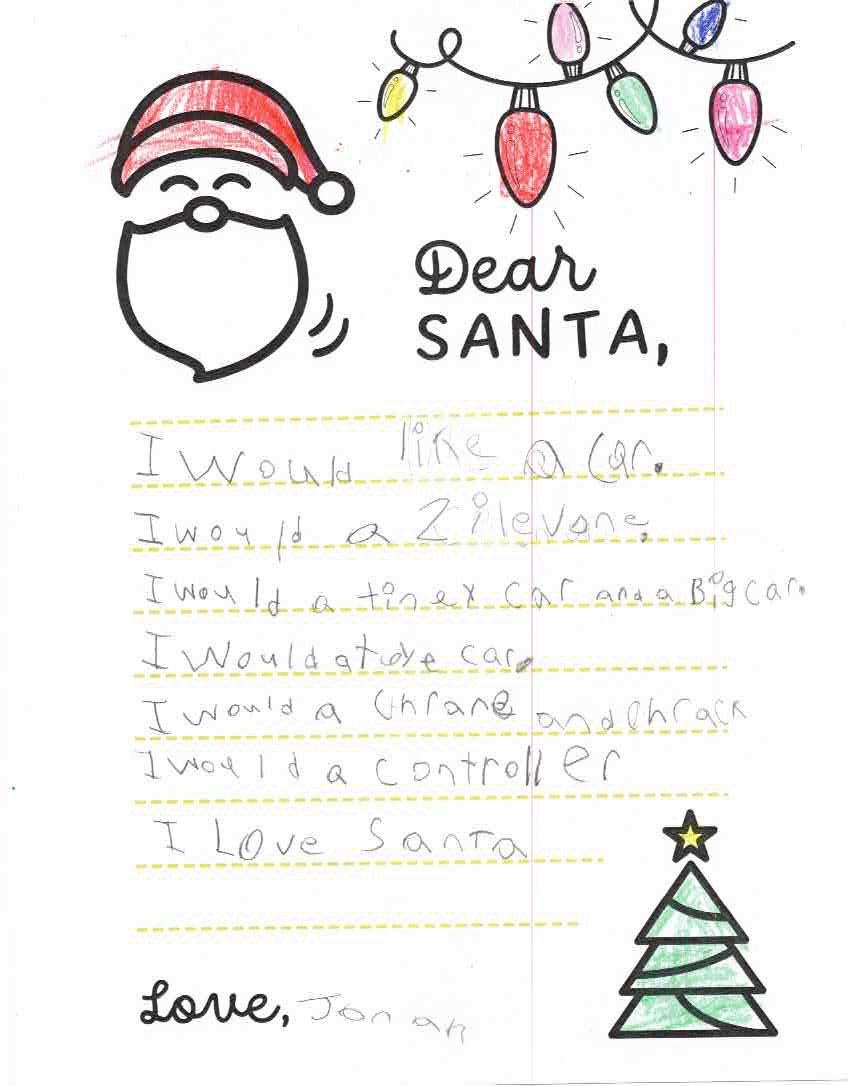 Dear
SANTA,
I Would like a Car.
I would a Zilevone.
I would a tinex car and a Big car.
I Would a toye car.
I would a thrane and thrack
I would a controller
I LOve Santa
Love, Jonah